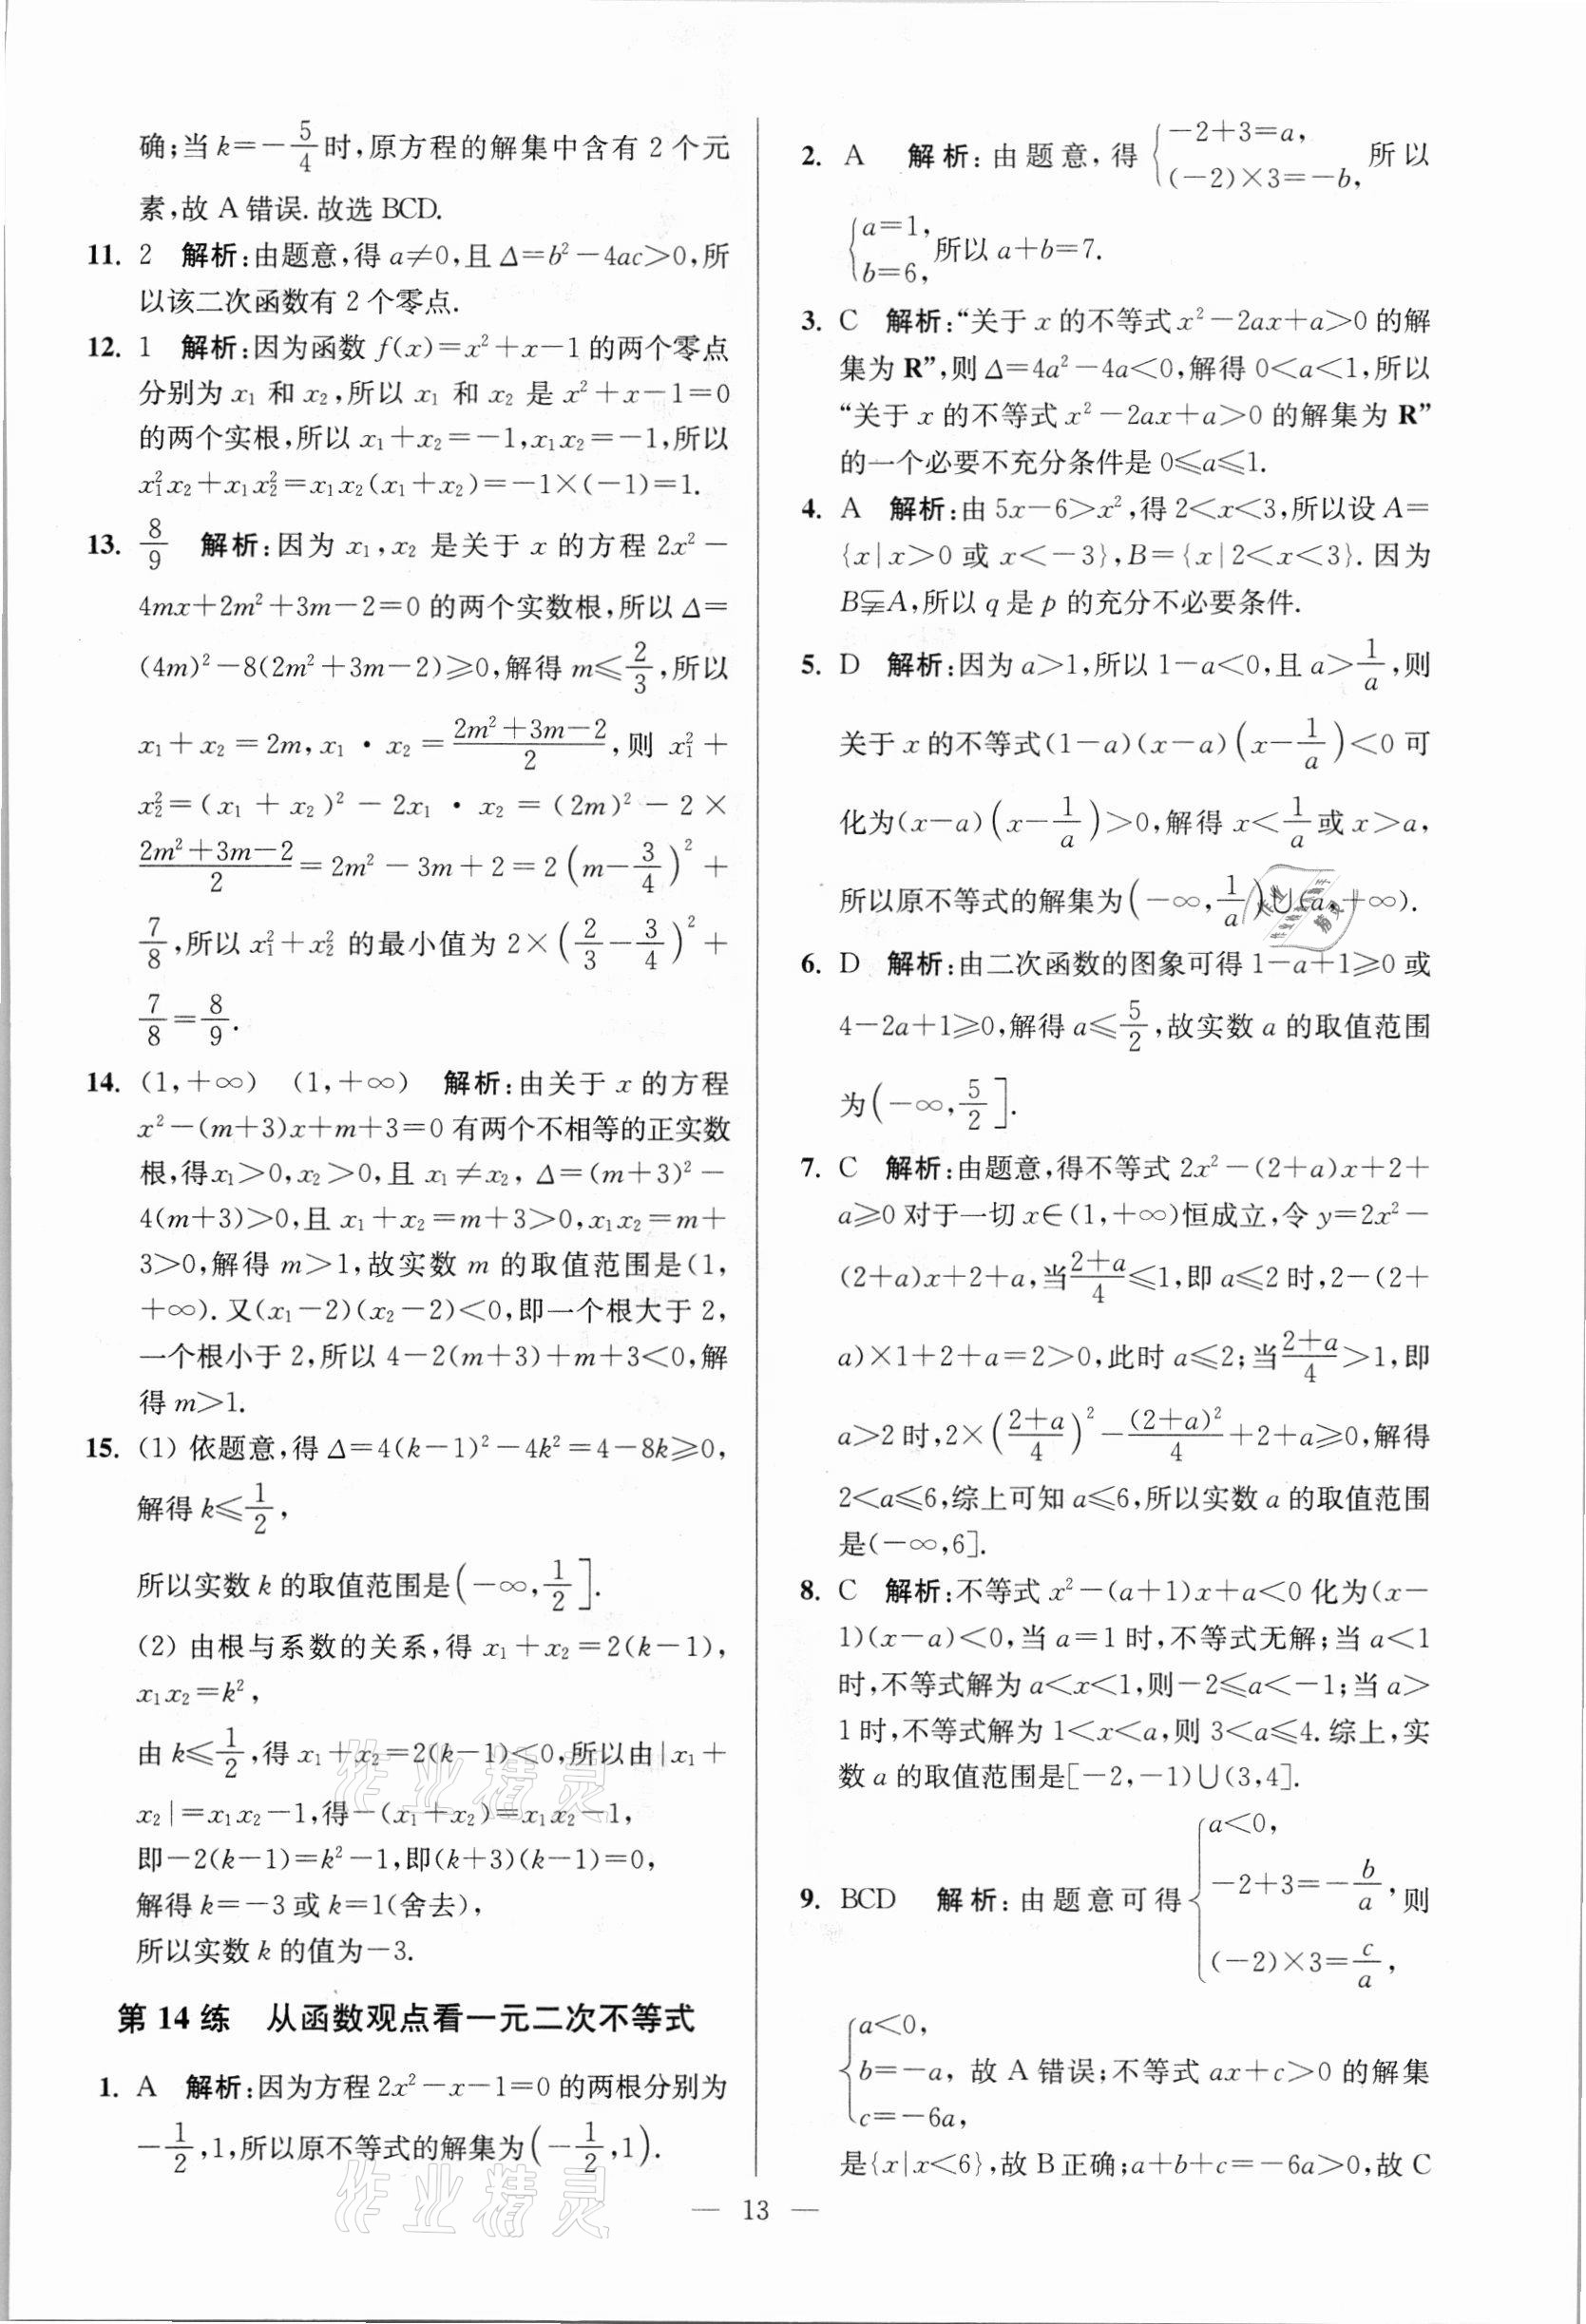 确;当 k=-5/4 时,原方程的解集中含有 2 个元
素,故 A 错误. 故选 BCD.
11. 2 解析:由题意,得 a≠0,且 Δ=b²-4ac>0,所
以该二次函数有 2 个零点.
12. 1 解析:因为函数 f(x)=x²+x-1 的两个零点
分别为 x₁ 和 x₂,所以 x₁ 和 x₂ 是 x²+x-1=0
的两个实根,所以 x₁+x₂=-1,x₁x₂=-1,所以
x₁²x₂+x₁x₂²=x₁x₂(x₁+x₂)=-1×(-1)=1.
13. 8/9 解析:因为 x₁,x₂ 是关于 x 的方程 2x²-
4mx+2m²+3m-2=0 的两个实数根,所以 Δ=
(4m)²-8(2m²+3m-2)≥0,解得 m≤2/3,所以
x₁+x₂=2m,x₁·x₂=(2m²+3m-2)/2,则 x₁²+
x₂²=(x₁+x₂)²-2x₁·x₂=(2m)²-2×
(2m²+3m-2)/2=2m²-3m+2=2(m-3/4)²+
7/8,所以 x₁²+x₂² 的最小值为 2×(2/3-3/4)²+
7/8=8/9.
14. (1,+∞) (1,+∞) 解析:由关于 x 的方程
x²-(m+3)x+m+3=0 有两个不相等的正实数
根,得x₁>0,x₂>0,且 x₁≠x₂, Δ=(m+3)²-
4(m+3)>0,且 x₁+x₂=m+3>0,x₁x₂=m+
3>0,解得 m>1,故实数 m 的取值范围是(1,
+∞). 又(x₁-2)(x₂-2)<0,即一个根大于 2,
一个根小于 2,所以 4-2(m+3)+m+3<0,解
得 m>1.
15. (1) 依题意,得 Δ=4(k-1)²-4k²=4-8k≥0,
解得 k≤1/2,
所以实数 k 的取值范围是(-∞,1/2].
(2) 由根与系数的关系,得 x₁+x₂=2(k-1),
x₁x₂=k²,
由 k≤1/2,得 x₁+x₂=2(k-1)<0,所以由|x₁+
x₂|=x₁x₂-1,得-(x₁+x₂)=x₁x₂-1,
即-2(k-1)=k²-1,即(k+3)(k-1)=0,
解得 k=-3 或 k=1(舍去),
所以实数 k 的值为-3.
第 14 练 从函数观点看一元二次不等式
1. A 解析:因为方程 2x²-x-1=0 的两根分别为
-1/2,1,所以原不等式的解集为(-1/2,1).
2. A 解析:由题意,得{-2+3=a, (-2)×3=-b, 所以
{a=1, b=6, 所以 a+b=7.
3. C 解析:“关于 x 的不等式 x²-2ax+a>0 的解
集为 R”,则 Δ=4a²-4a<0,解得 0<a<1,所以
“关于 x 的不等式 x²-2ax+a>0 的解集为 R”
的一个必要不充分条件是 0≤a≤1.
4. A 解析:由 5x-6>x²,得 2<x<3,所以设 A=
{x|x>0 或 x<-3},B={x|2<x<3}. 因为
B⫋A,所以 q 是 p 的充分不必要条件.
5. D 解析:因为 a>1,所以 1-a<0,且 a>1/a,则
关于 x 的不等式(1-a)(x-a)(x-1/a)<0 可
化为(x-a)(x-1/a)>0,解得 x<1/a 或 x>a,
所以原不等式的解集为(-∞,1/a)∪(a,+∞).
6. D 解析:由二次函数的图象可得 1-a+1≥0 或
4-2a+1≥0,解得 a≤5/2,故实数 a 的取值范围
为(-∞,5/2].
7. C 解析:由题意,得不等式 2x²-(2+a)x+2+
a≥0 对于一切 x∈(1,+∞)恒成立,令 y=2x²-
(2+a)x+2+a,当(2+a)/4≤1,即 a≤2 时,2-(2+
a)×1+2+a=2>0,此时 a≤2;当(2+a)/4>1,即
a>2 时,2×((2+a)/4)²-(2+a)²/4+2+a≥0,解得
2<a≤6,综上可知 a≤6,所以实数 a 的取值范围
是(-∞,6].
8. C 解析:不等式 x²-(a+1)x+a<0 化为(x-
1)(x-a)<0,当 a=1 时,不等式无解;当 a<1
时,不等式解为 a<x<1,则-2≤a<-1;当 a>
1 时,不等式解为 1<x<a,则 3<a≤4. 综上,实
数 a 的取值范围是[-2,-1)∪(3,4].
9. BCD 解析:由题意可得{a<0, -2+3=-b/a, (-2)×3=c/a, 则
{a<0, b=-a, c=-6a, 故 A 错误;不等式 ax+c>0 的解集
是{x|x<6},故 B 正确;a+b+c=-6a>0,故 C
— 13 —
作业精灵
作业精灵